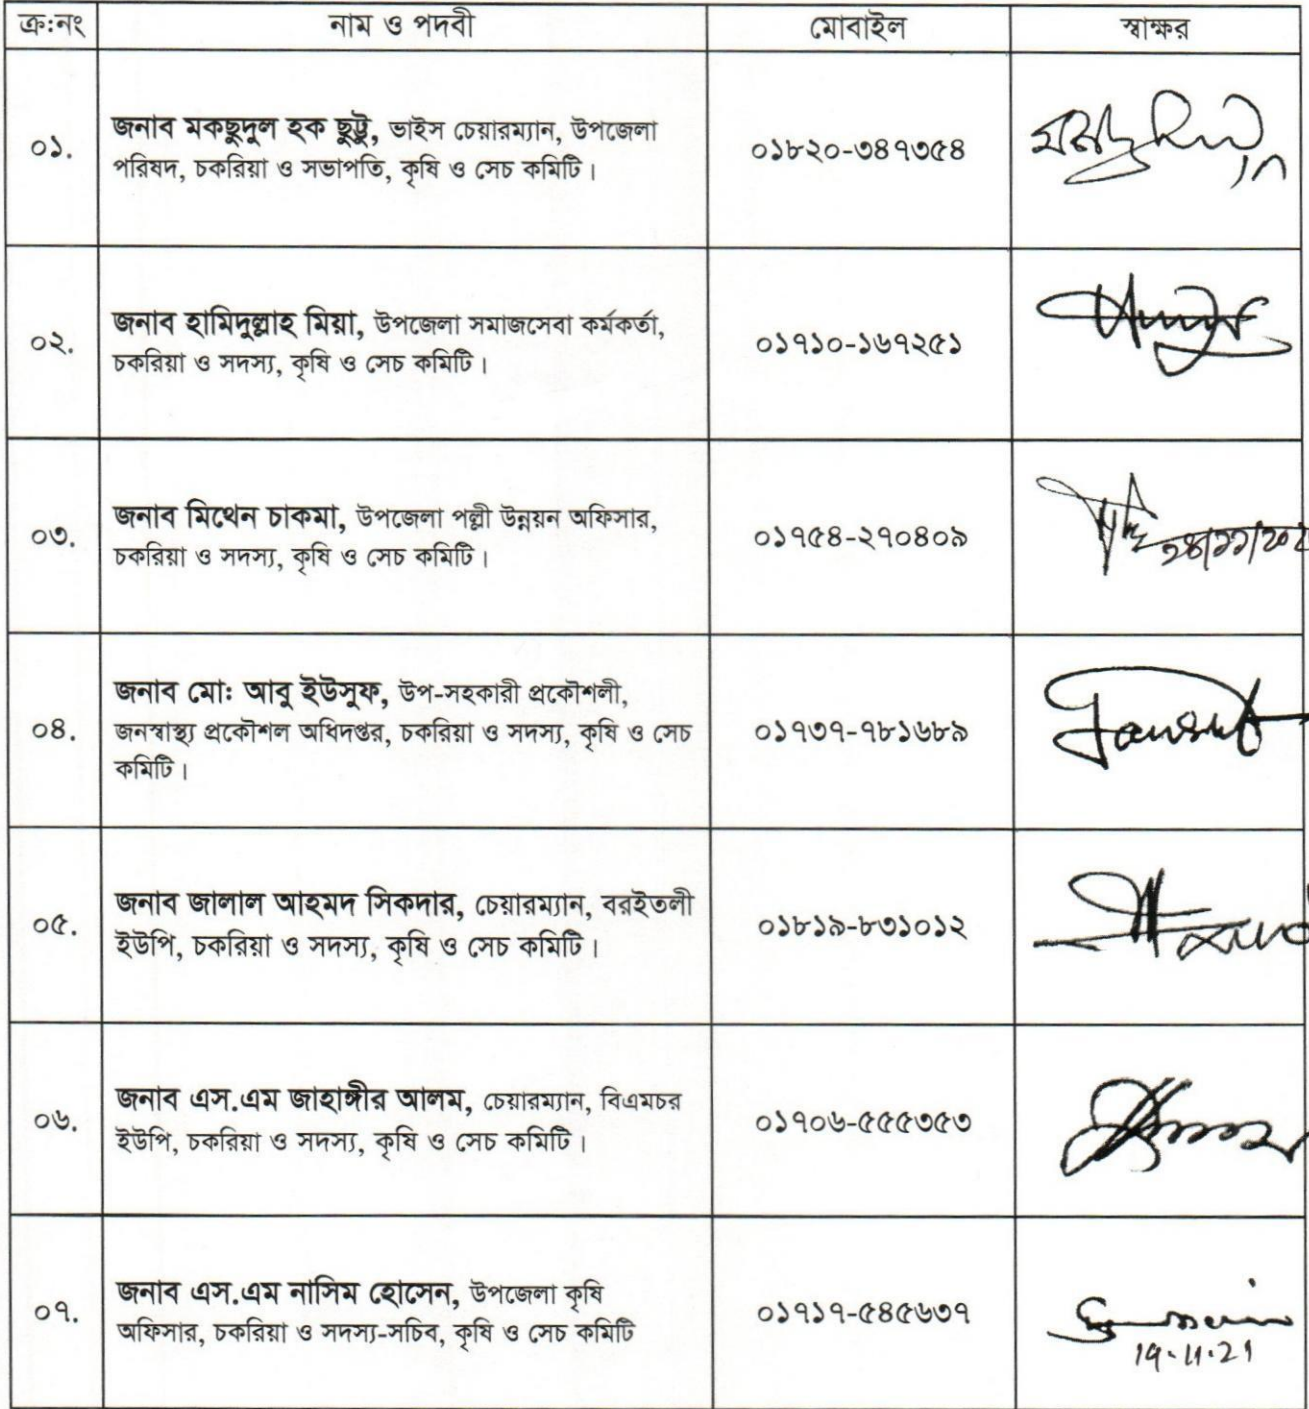 ক্র:নং নাম ও পদবী মোবাইল স্বাক্ষর
০১. জনাব মকছুদুল হক ছুট্টু, ভাইস চেয়ারম্যান, উপজেলা
পরিষদ, চকরিয়া ও সভাপতি, কৃষি ও সেচ কমিটি।
০১৮২০-৩৪৭৩৫৪
০২. জনাব হামিদুল্লাহ মিয়া, উপজেলা সমাজসেবা কর্মকর্তা,
চকরিয়া ও সদস্য, কৃষি ও সেচ কমিটি।
০১৭১০-১৬৭২৫১
০৩. জনাব মিথেন চাকমা, উপজেলা পল্লী উন্নয়ন অফিসার,
চকরিয়া ও সদস্য, কৃষি ও সেচ কমিটি।
০১৭৫৪-২৭০৪০৯
০৪. জনাব মো: আবু ইউসুফ, উপ-সহকারী প্রকৌশলী,
জনস্বাস্থ্য প্রকৌশল অধিদপ্তর, চকরিয়া ও সদস্য, কৃষি ও সেচ
কমিটি।
০১৭৩৭-৭৮১৬৮৯
০৫. জনাব জালাল আহমদ সিকদার, চেয়ারম্যান, বরইতলী
ইউপি, চকরিয়া ও সদস্য, কৃষি ও সেচ কমিটি।
০১৮১৯-৮৩১০১২
০৬. জনাব এস.এম জাহাঙ্গীর আলম, চেয়ারম্যান, বিএমচর
ইউপি, চকরিয়া ও সদস্য, কৃষি ও সেচ কমিটি।
০১৭০৬-৫৫৫৩৫৩
০৭. জনাব এস.এম নাসিম হোসেন, উপজেলা কৃষি
অফিসার, চকরিয়া ও সদস্য-সচিব, কৃষি ও সেচ কমিটি
০১৭১৭-৫৪৫৬৩৭